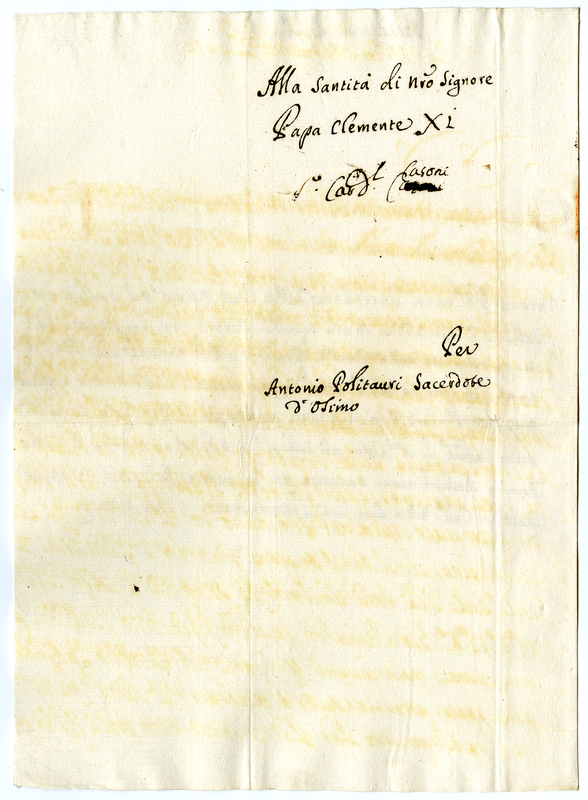 Alla Santità di Nr̃o Signore
Papa Clemente XI
S.r Card.l Casoni
Per
Antonio Politauri Sacerdote
d' Osimo